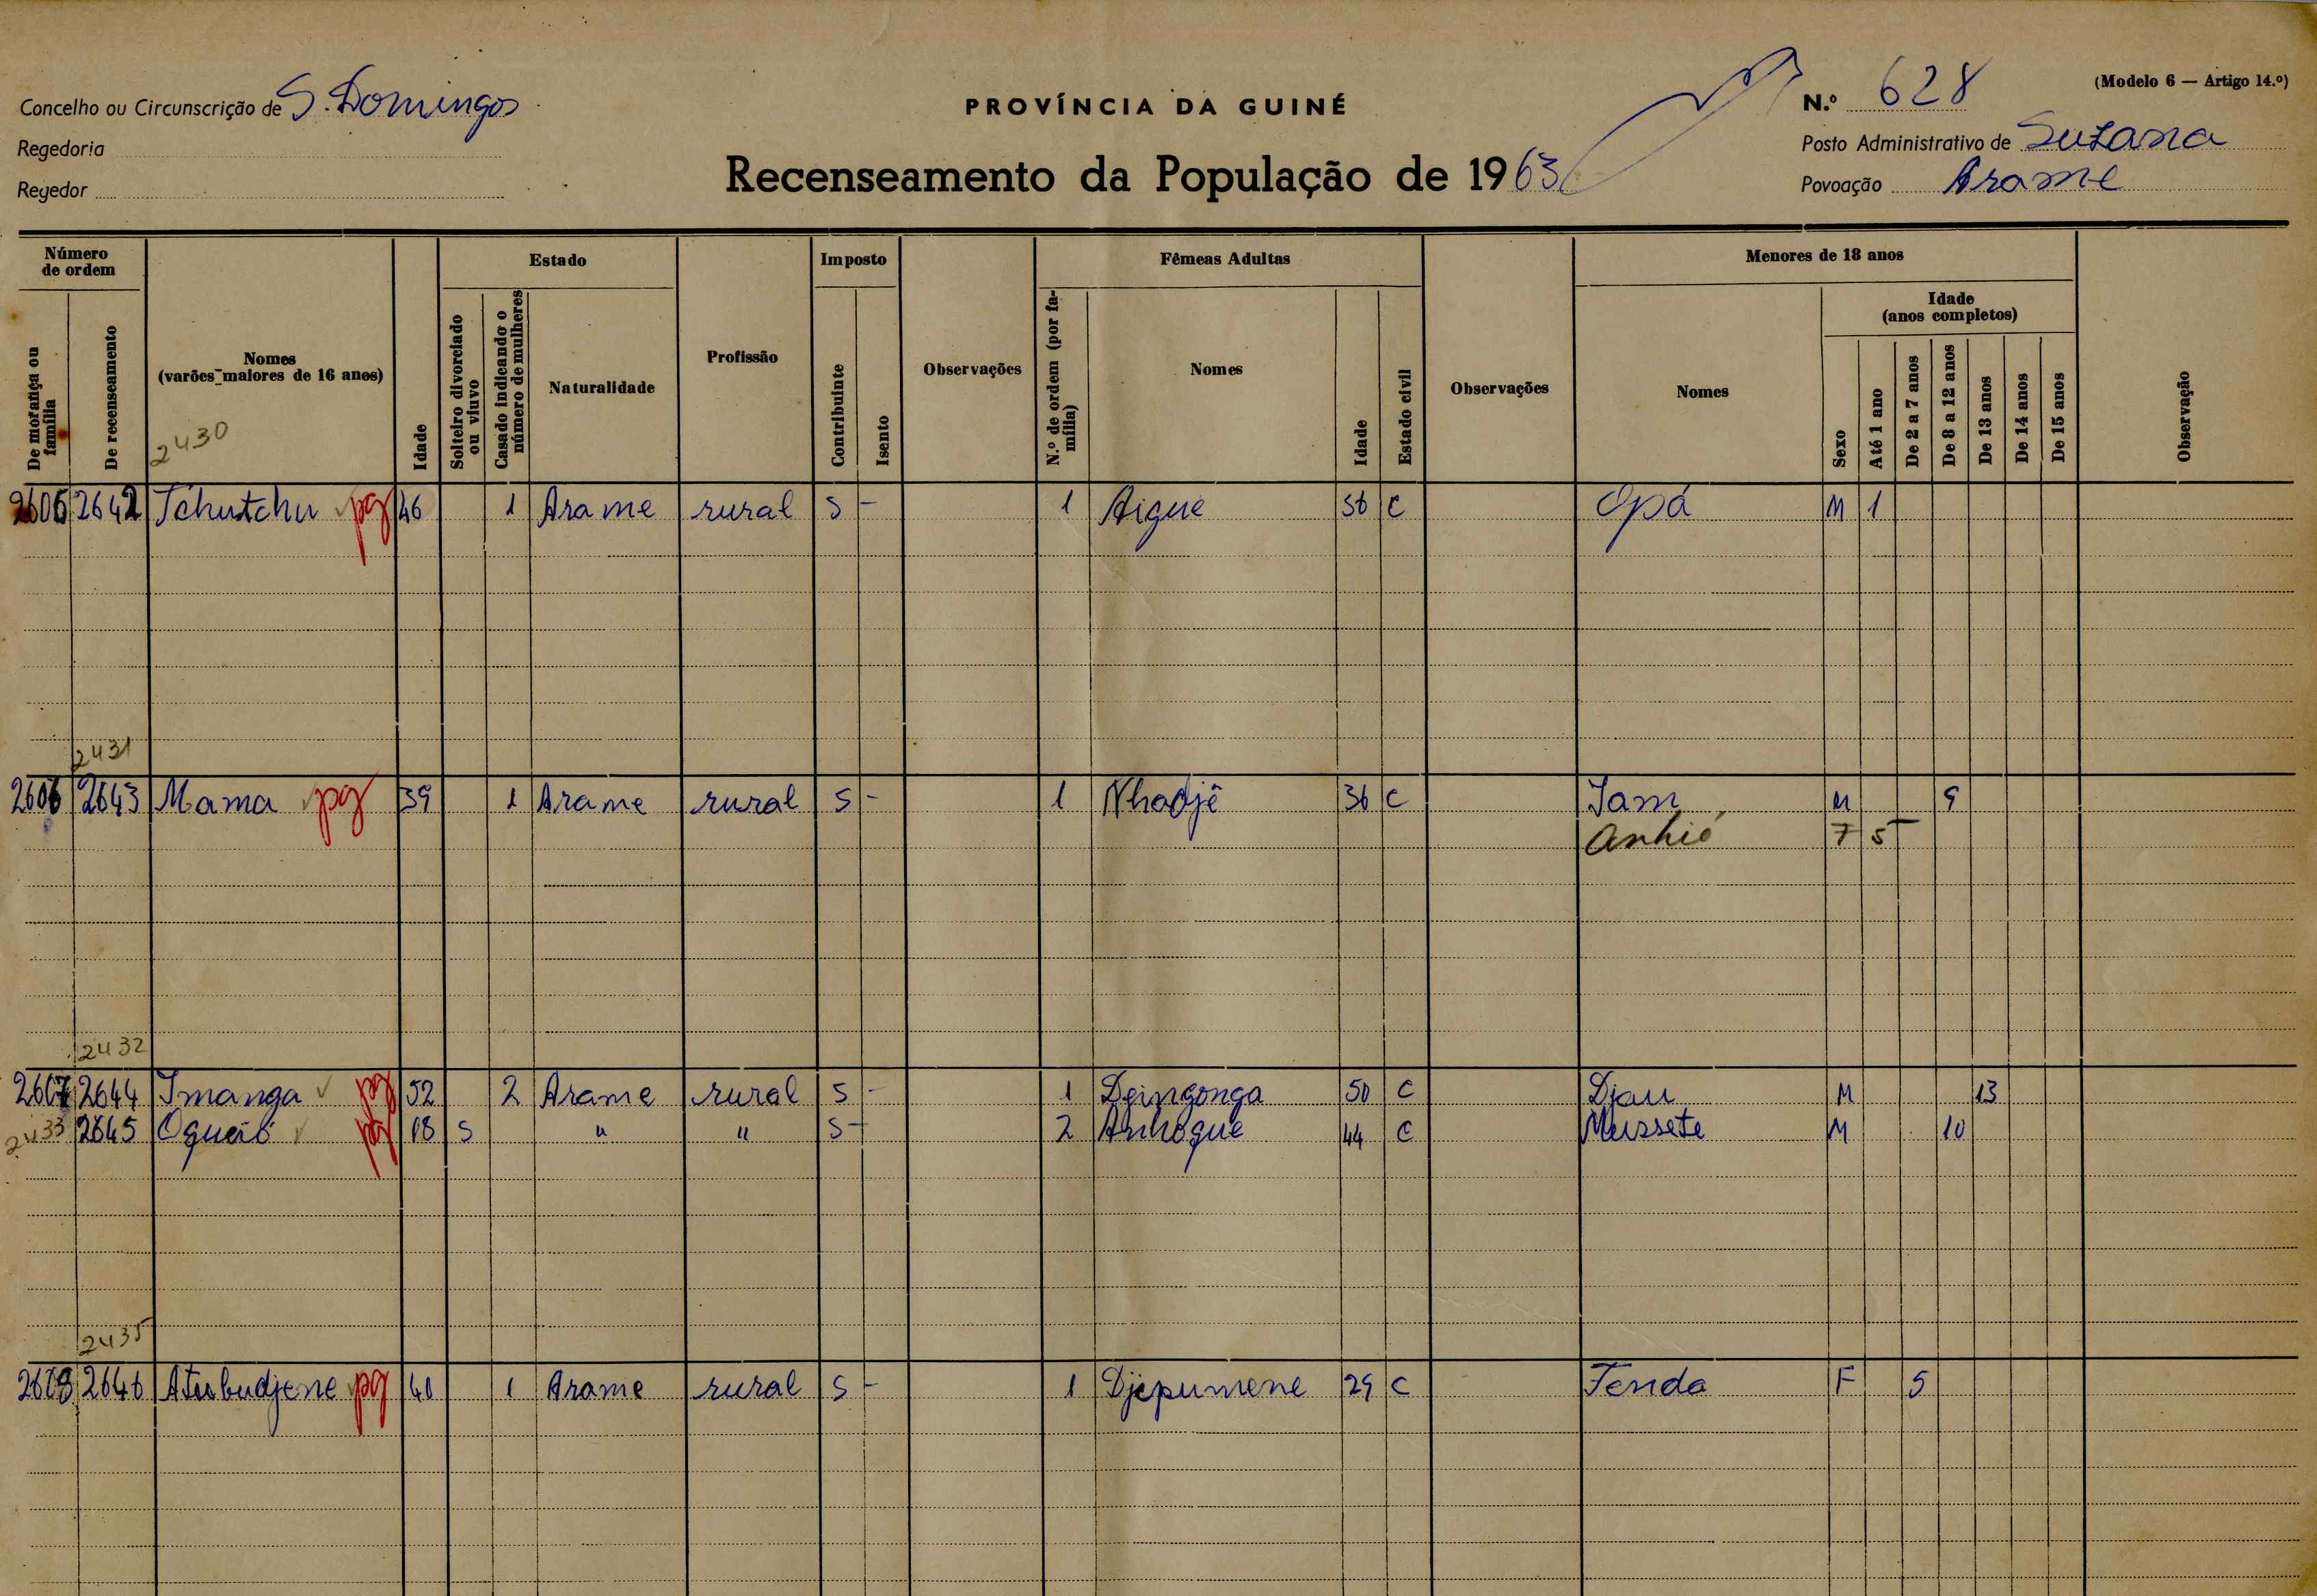 (Modelo 6 — Artigo 14.º)
Concelho ou Circunscrição de S. Domingos
PROVÍNCIA DA GUINÉ
N.º 628
Regedoria
Posto Administrativo de Suzana
Regedor
Recenseamento da População de 1963
Povoação Arame
Número de ordem
Estado
Imposto
Fêmeas Adultas
Menores de 18 anos
De morança ou família
De recenseamento
Nomes (varões maiores de 16 anos)
Idade
Solteiro divorciado ou viuvo
Casado indicando o número de mulheres
Naturalidade
Profissão
Contribuinte
Isento
Observações
N.º de ordem (por família)
Nomes
Idade
Estado civil
Observações
Nomes
Sexo
Idade (anos completos)
Até 1 ano
De 2 a 7 anos
De 8 a 12 anos
De 13 anos
De 14 anos
De 15 anos
Observação
2430
2642 Tchutchu pg 46 1 Arame rural S - 1 Aigue 36 C Opá M 1
2431
2606 2643 Mama pg 39 1 Arame rural S - 1 Nhadjê 36 C Iam M 9
Anhió F 5
2432
2607 2644 Imanga pg 52 2 Arame rural S - 1 50 C Djau M 13
2433 2645 pg 18 S " " S - 2 Anhogue 44 C Mussete M 10
2435
2608 2646 pg 40 1 Arame rural S - 1 Djepumene 29 C Tenda F 5